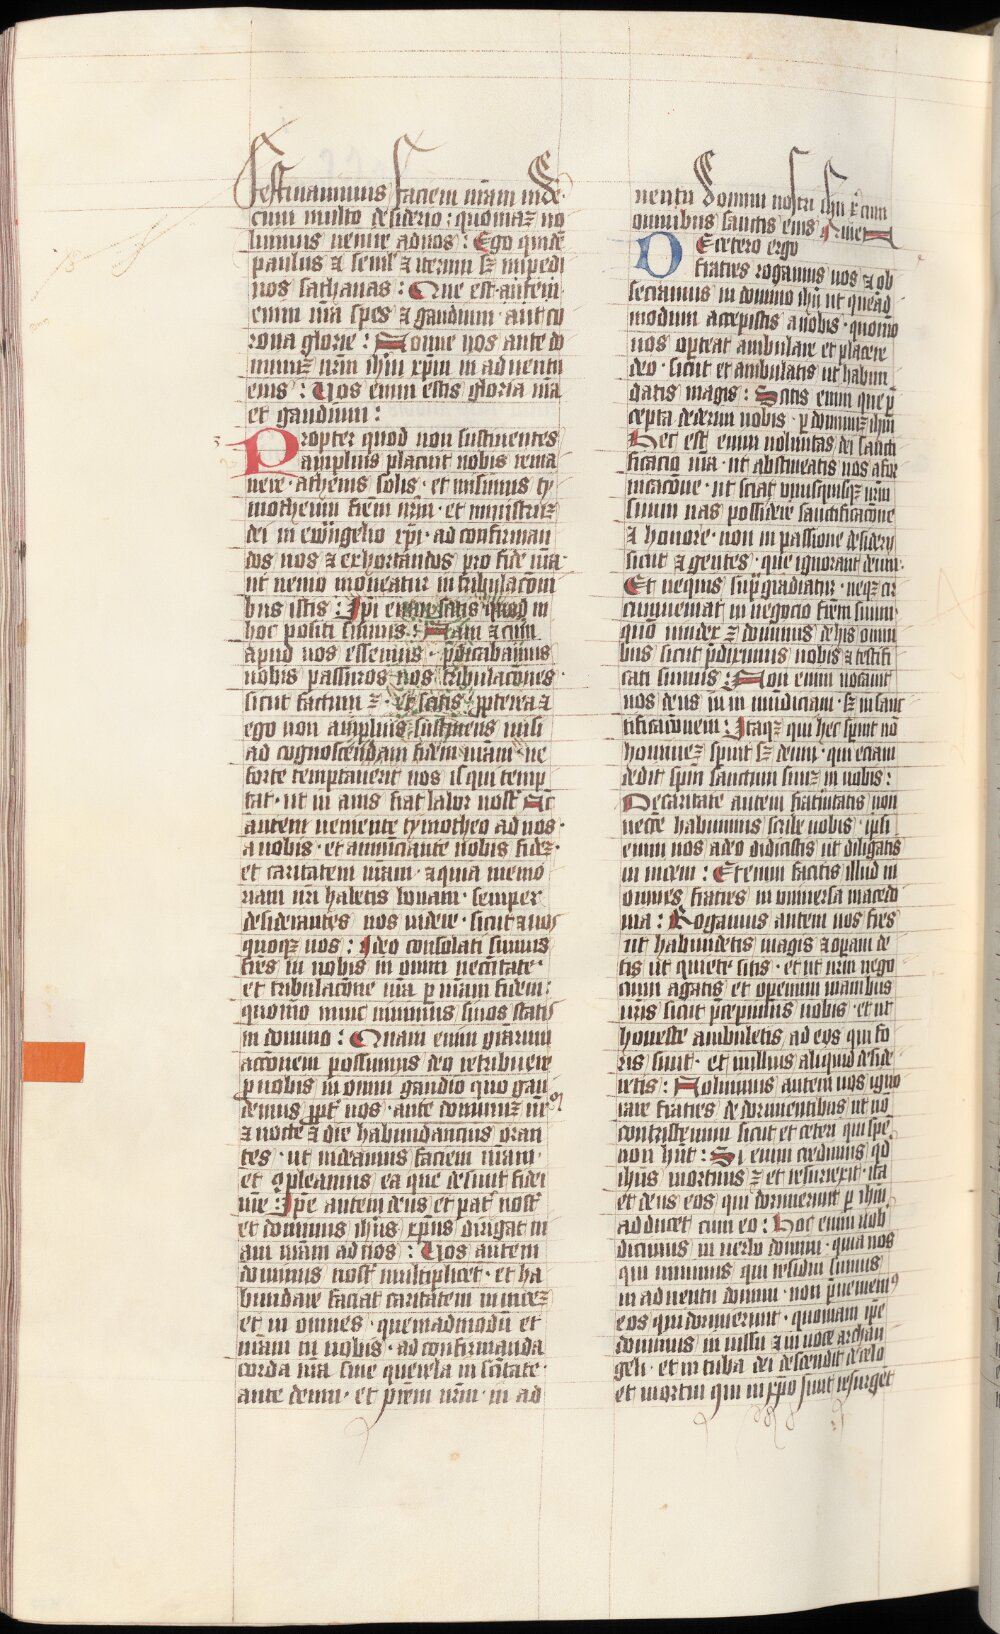 festinauimus faciem vr̄am vide
cum multo desiderio : quoniaꝫ uo
luimus uenire ad uos : Ego quidē
paulus ⁊ semel ⁊ iterum sꝫ impedi
uit nos sathanas : Que est autem
enim nr̄a spes ⁊ gaudium · aut co
rona glorie : Nonne uos ante do
minuꝫ nr̄m ih̄m xp̄m in aduentu
eius : Uos enim estis gloria nr̄a
et gaudium :
Propter quod non sustinentes
amplius placuit nobis rema
nere · athenis solis · et misimus ty
motheum fr̄em nr̄m · et ministruꝫ
dei in ewūgelio xp̄i · ad confirman
dos uos ⁊ exhortandos pro fide vr̄a ·
ut nemo moueatur in tribulacōni
bus istis : Ipi enim scitis quod in
hoc positi sumus : Nam ⁊ cum
apud uos essemus · p̄dicabamus
uobis passuros nos tribulacōnes ·
sicut factum ē · et scitis ꝓpterea ⁊
ego non amplius sustinens misi
ad cognoscendam fidem vr̄am · ne
forte temptauerit uos is qui temp
tat · ut in anis fiat labor nost̄ Nc̄
autem ueniente tymotheo ad nos ·
a uobis · et annūciante nobis fideꝫ ·
et caritatem vr̄am · ⁊ quia memo
riam nr̄i habetis bonam · semper
desiderantes nos uidere · sicut ⁊ nos
quoqꝫ uos : Ideo consolati sumus
fr̄es in uobis in omni necc̄itate ·
et tribulacōne nr̄a p̄ vr̄am fidem :
quoniō nunc uiuimus si uos statis
in domino : Quam enim gr̄arum
accōnem possumus deo retribuere
p̄ uobis in omni gaudio quo gau
demus ꝓpt̄ uos · ante dominuꝫ nr̄
⁊ nocte ⁊ die habundancius oran
tes · ut uideamus faciem vr̄am ·
et ꝯpleamus ea que desunt fidei
vr̄e : Ip̄e autem deus et pat̄ nost̄
et dominus ih̄us xp̄us dirigat ui
am nr̄am ad uos : Uos autem
dominus nost̄ multiplicet · et ha
bundare faciat caritatem in inuiceꝫ
et in omnes · quemadmodū et
nr̄am in uobis · ad confirmanda
corda vr̄a sine querela in sc̄itate ·
ante deum · et pr̄em nr̄m · in ad
uentu domini nostri ih̄u xp̄i cum
omnibus sanctis eius Amen
De cetero ergo
fratres rogamus uos ⁊ ob
secramus in domino ih̄u ut quēad
modum accepistis a nobis · quomō
uos oporteat ambulare et placere
deo · sicut et ambulatis ut habun
detis magis : Scitis enim que p̄
cepta dederim uobis · p̄ dominuꝫ ih̄m
Hec est enim uoluntas dei sancti
ficacio vr̄a · ut abstineatis uos a for
nicacōne · ut sciat unusquisqꝫ vr̄m
suum uas possidere sanctificacōne
⁊ honore · non in passione desiderij
sicut ⁊ gentes · que ignorant deum ·
Et nequis supgrediatur · neqꝫ cir
cumueniat in negocio fr̄em suum ·
quō uindex ē dominus de his omni
bus sicut p̄diximus uobis ⁊ testifi
cati sumus : Non enim uocauit
nos deus in in mūdiciam · sꝫ in sanc
tificacōnem : Itaqꝫ qui hec spnit nō
hommeꝫ spnit sꝫ deum · qui eciam
dedit spm sanctum suuꝫ in nobis :
De caritate autem fr̄nitatis non
necc̄e habuimus scribe uobis · ipsi
enim uos adeo didicistis ut diligatis
in uicem : Etenim facitis illud in
omnes fratres in uniuersa macedo
nia : Rogamus autem uos fr̄es
ut habundetis magis ⁊ opam de
tis ut quiete sitis · et ut vr̄m nego
cium agatis et operemini manibus
vr̄is sicut p̄cepimus uobis · et ut
honeste ambuletis ad eos qui fo
ris sunt · et nullius aliquid deside
retis : Nolumus autem uos igno
rare fratres de dormientibus ut nō
contristemini sicut et ceteri qui spē
non hn̄t : Si enim credimus qd
ih̄us mortuus ē et resurrexit · ita
et deus eos qui dormierunt p̄ ih̄m
adducet cum eo : Hoc enim uob
dicimus in uerbo domini · quia nos
qui uiuimus qui residui sumus
in aduentu domini · non p̄ueniemꝰ
eos qui dormierunt · quoniam ip̄e
dominus in iussu ⁊ in uoce archan
geli · et in tuba dei descendit de celo
et mortui qui in xp̄o sunt resurget